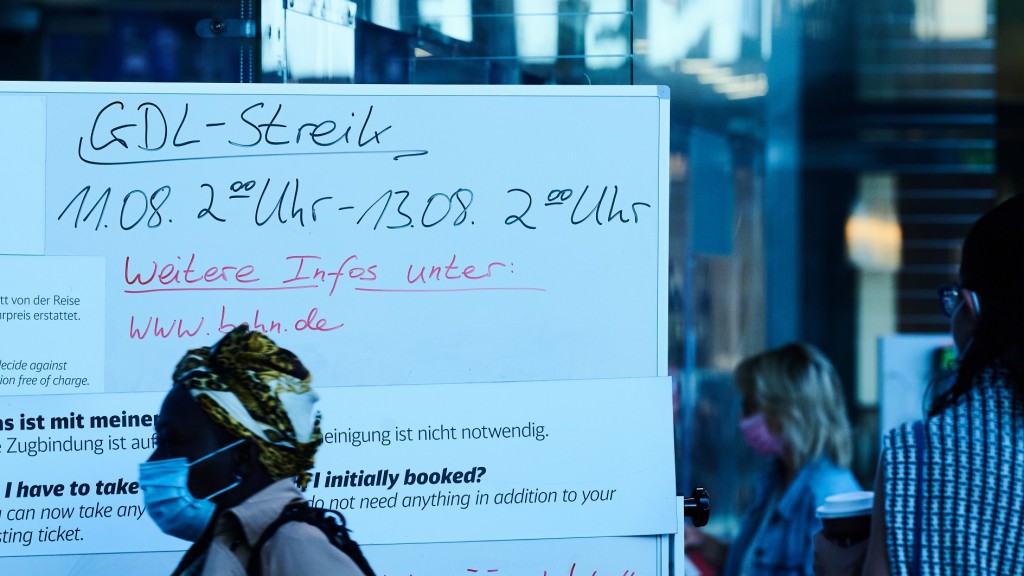 GDL-Streik
11.08. 2⁰⁰ Uhr - 13.08. 2⁰⁰ Uhr
Weitere Infos unter:
www.bahn.de
tt von der Reise
rpreis erstattet.
decide against
ion free of charge.
as ist mit meiner
e Zugbindung ist auf einigung ist nicht notwendig.
I have to take I initially booked?
can now take any do not need anything in addition to your
sting ticket.